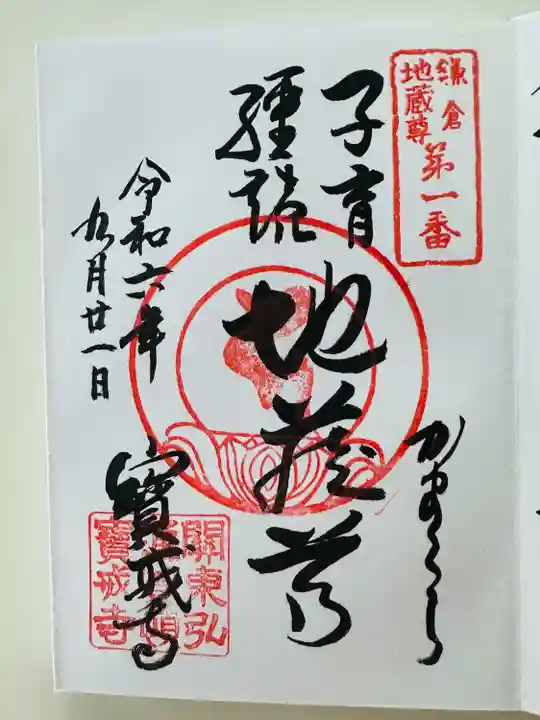 鎌倉
地蔵尊
第一番
かまくら
子育
經讀
地蔵尊
令和六年
九月廿一日
寶戒寺
關東弘
寶戒寺